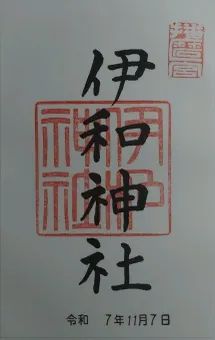 播磨一宮
伊和神社
伊和
神社
令和 7年11月7日